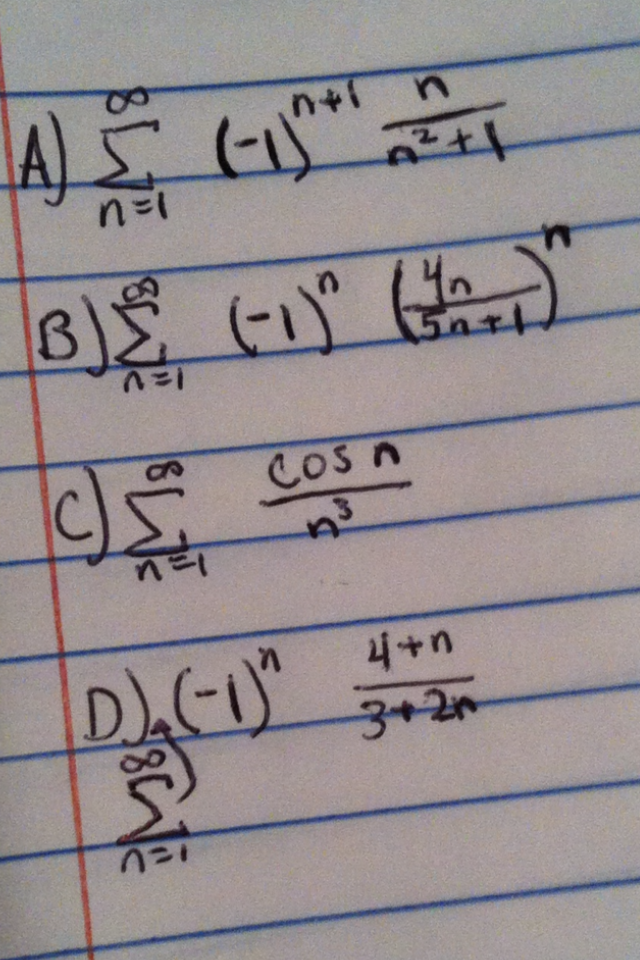 A) ∞ Σ n=1 (-1)^(n+1) n/(n²+1)
B) ∞ Σ n=1 (-1)^n (4n/(5n+1))^n
C) ∞ Σ n=1 cos n/n³
D) (-1)^n (4+n)/(3+2n)
∞ Σ n=1